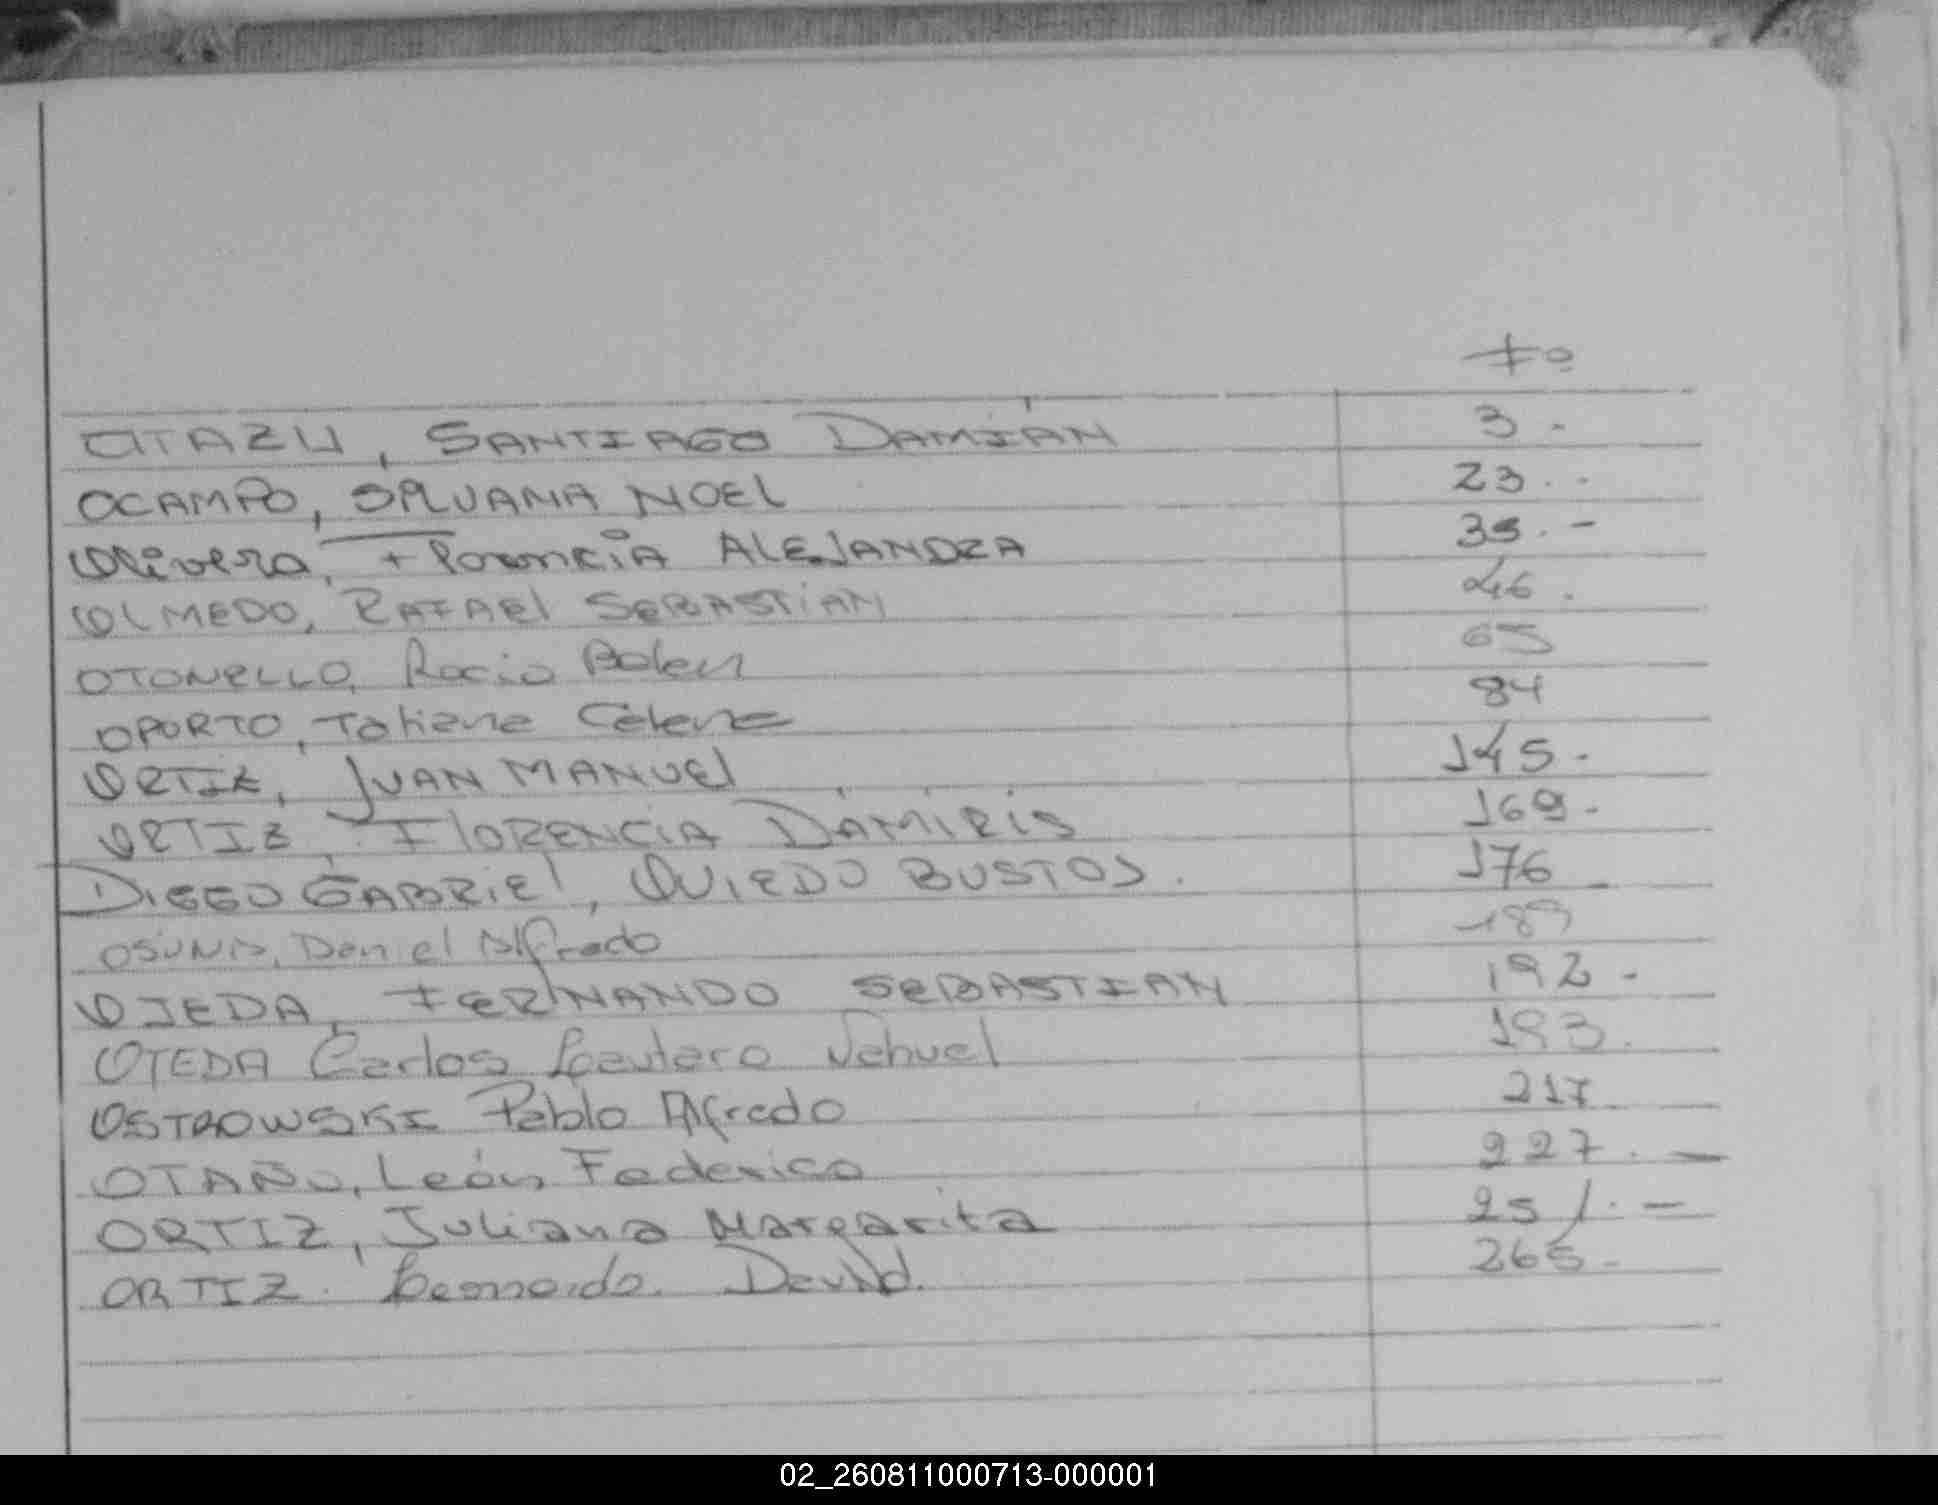 Fº
OTAZU, SANTIAGO DAMIÁN 3.-
OCAMPO, SILVANA NOEL 23.-
Olivera, Florencia ALEJANDRA 35.-
OLMEDO, RAFAEl SEBASTIAN 46.
OTONELLO, Rocio Belen 65
OPORTO, Tatiana Celene 84
ORTIZ, JUAN MANUEl 145.-
ORTIZ, FlORENCIA DAMIRIS 169.-
DIEGO GABRIEl, OVIEDO BUSTOS. 176
OSUNA, Daniel Alfredo 189
OJEDA, FERNANDO SEBASTIAN 192.-
OJEDA Carlos Lautaro Nehuel 193.
OSTROWSKI Pablo Alfredo 217
OTAÑO, León Federico 227.-
ORTIZ, Juliana Margarita 251.-
ORTIZ. Leonardo. David. 265.-
02_260811000713-000001